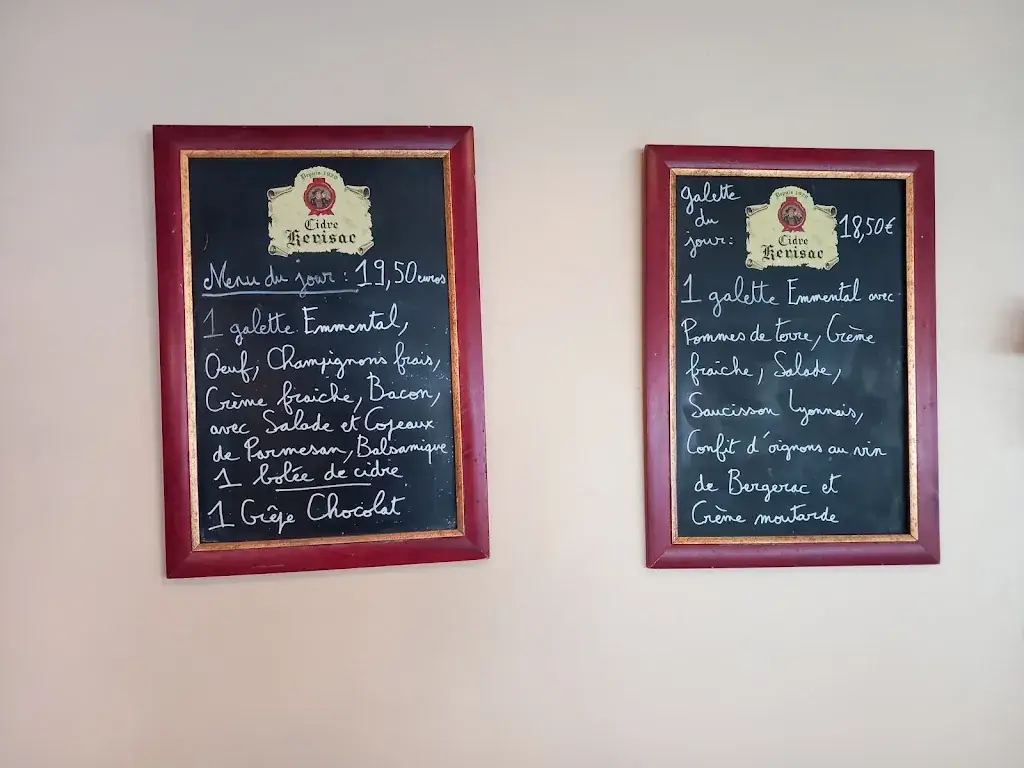 Depuis 1920
Cidre
Kerisac
Menu du jour : 19,50 euros
1 galette Emmental,
Oeuf, Champignons frais,
Crème fraîche, Bacon,
avec Salade et Copeaux
de Parmesan, Balsamique
1 bolée de cidre
1 Crêpe Chocolat
galette
du
jour :
Depuis 1920
Cidre
Kerisac
18,50€
1 galette Emmental avec
Pommes de terre, Crème
fraîche, Salade,
Saucisson Lyonnais,
Confit d'oignons au vin
de Bergerac et
Crème moutarde